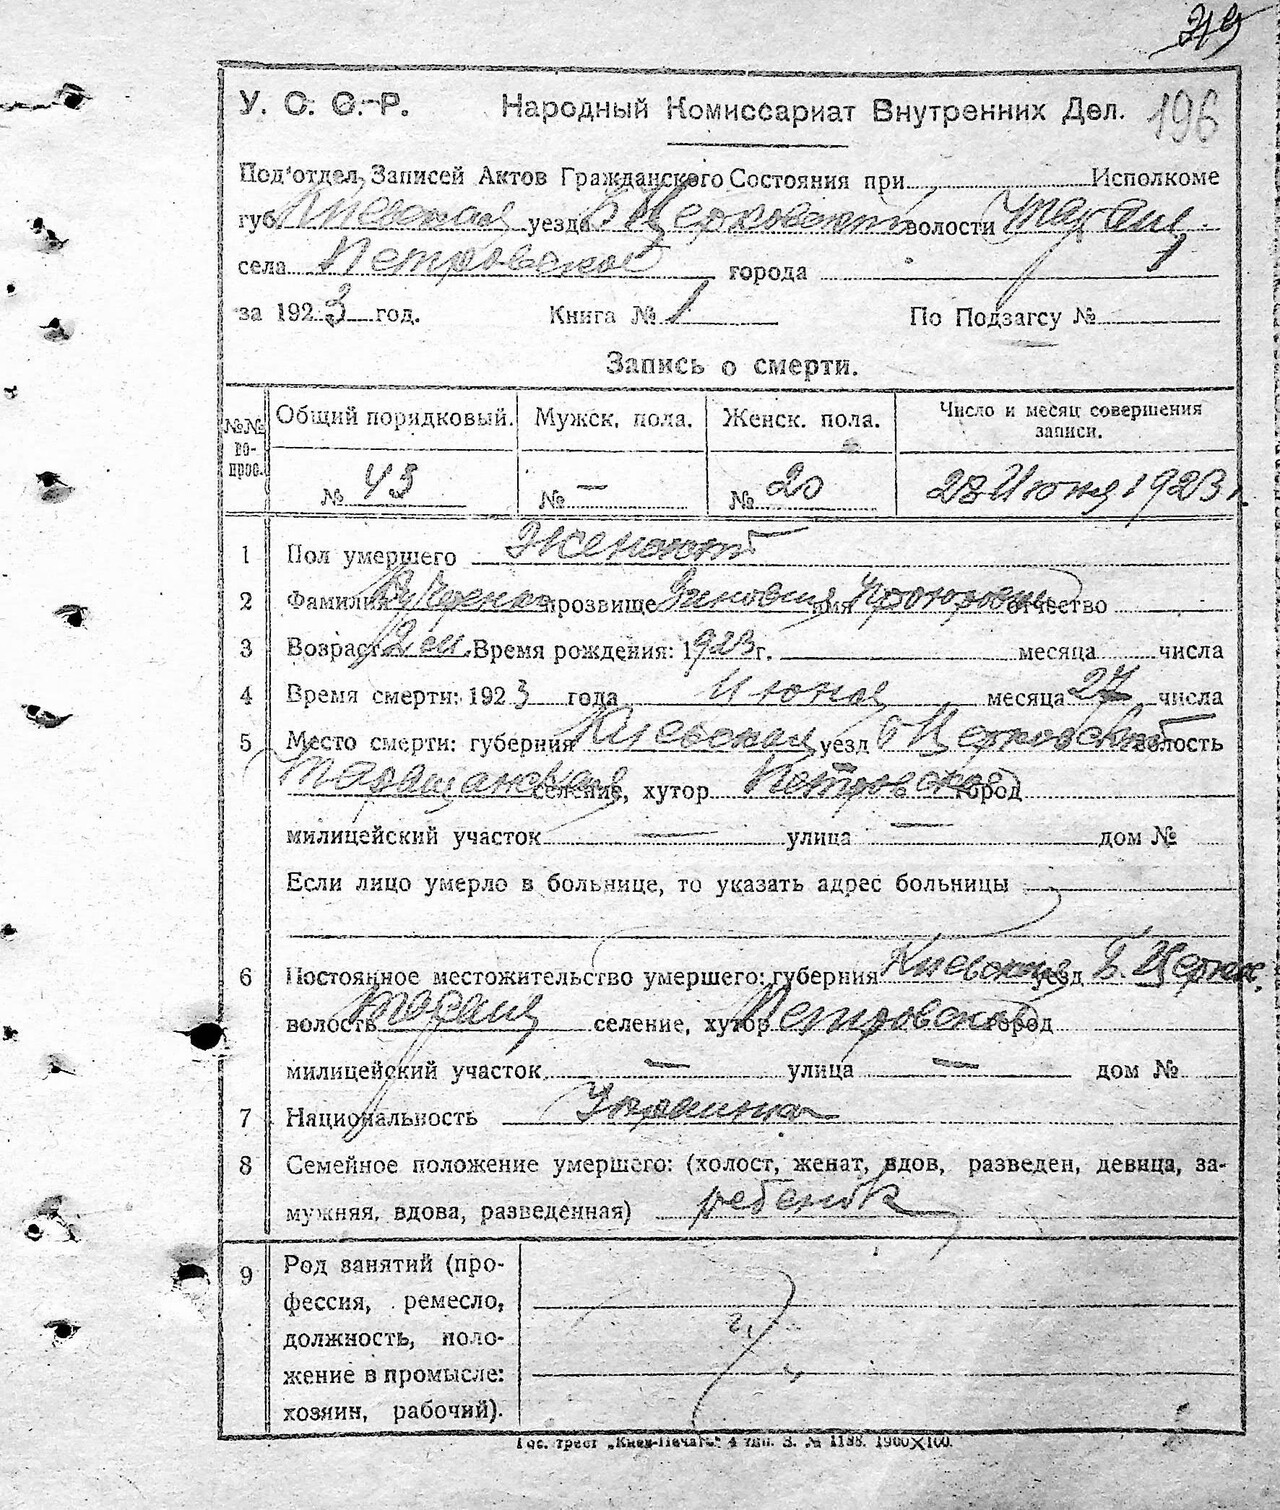 219
У. С. С.-Р. Народный Комиссариат Внутренних Дел. 196
Под'отдел Записей Актов Гражданского Состояния при Исполкоме
губ. Киевская уезда Б Церковский волости
села Петровское города
за 1923 год. Книга № 1 По Подзагсу №
Запись о смерти.
№№ во-прос. Общий порядковый. Мужск. пола. Женск. пола. Число и месяц совершения записи.
№ 43 № — № 20 28 Июня 1923 г.
1 Пол умершего Женский
2 Фамилия прозвище Зиновия имя отчество
3 Возраст 2 м. Время рождения: 1923 г. месяца числа
4 Время смерти: 1923 года Июня месяца 27 числа
5 Место смерти: губерния Киевская уезд Б Церковский волость
Таращанская селение, хутор Петровское город
милицейский участок — улица — дом №
Если лицо умерло в больнице, то указать адрес больницы
6 Постоянное местожительство умершего: губерния Киевская уезд Б. Церков.
волость селение, хутор Петровское город
милицейский участок — улица — дом №
7 Национальность Украинка
8 Семейное положение умершего: (холост, женат, вдов, разведен, девица, за-
мужняя, вдова, разведенная) ребенок
9 Род занятий (про-
фессия, ремесло,
должность, поло-
жение в промысле:
хозяин, рабочий).
Гос. трест „Киев-Печать" 4 тип. З. № 1188. 1900×100.